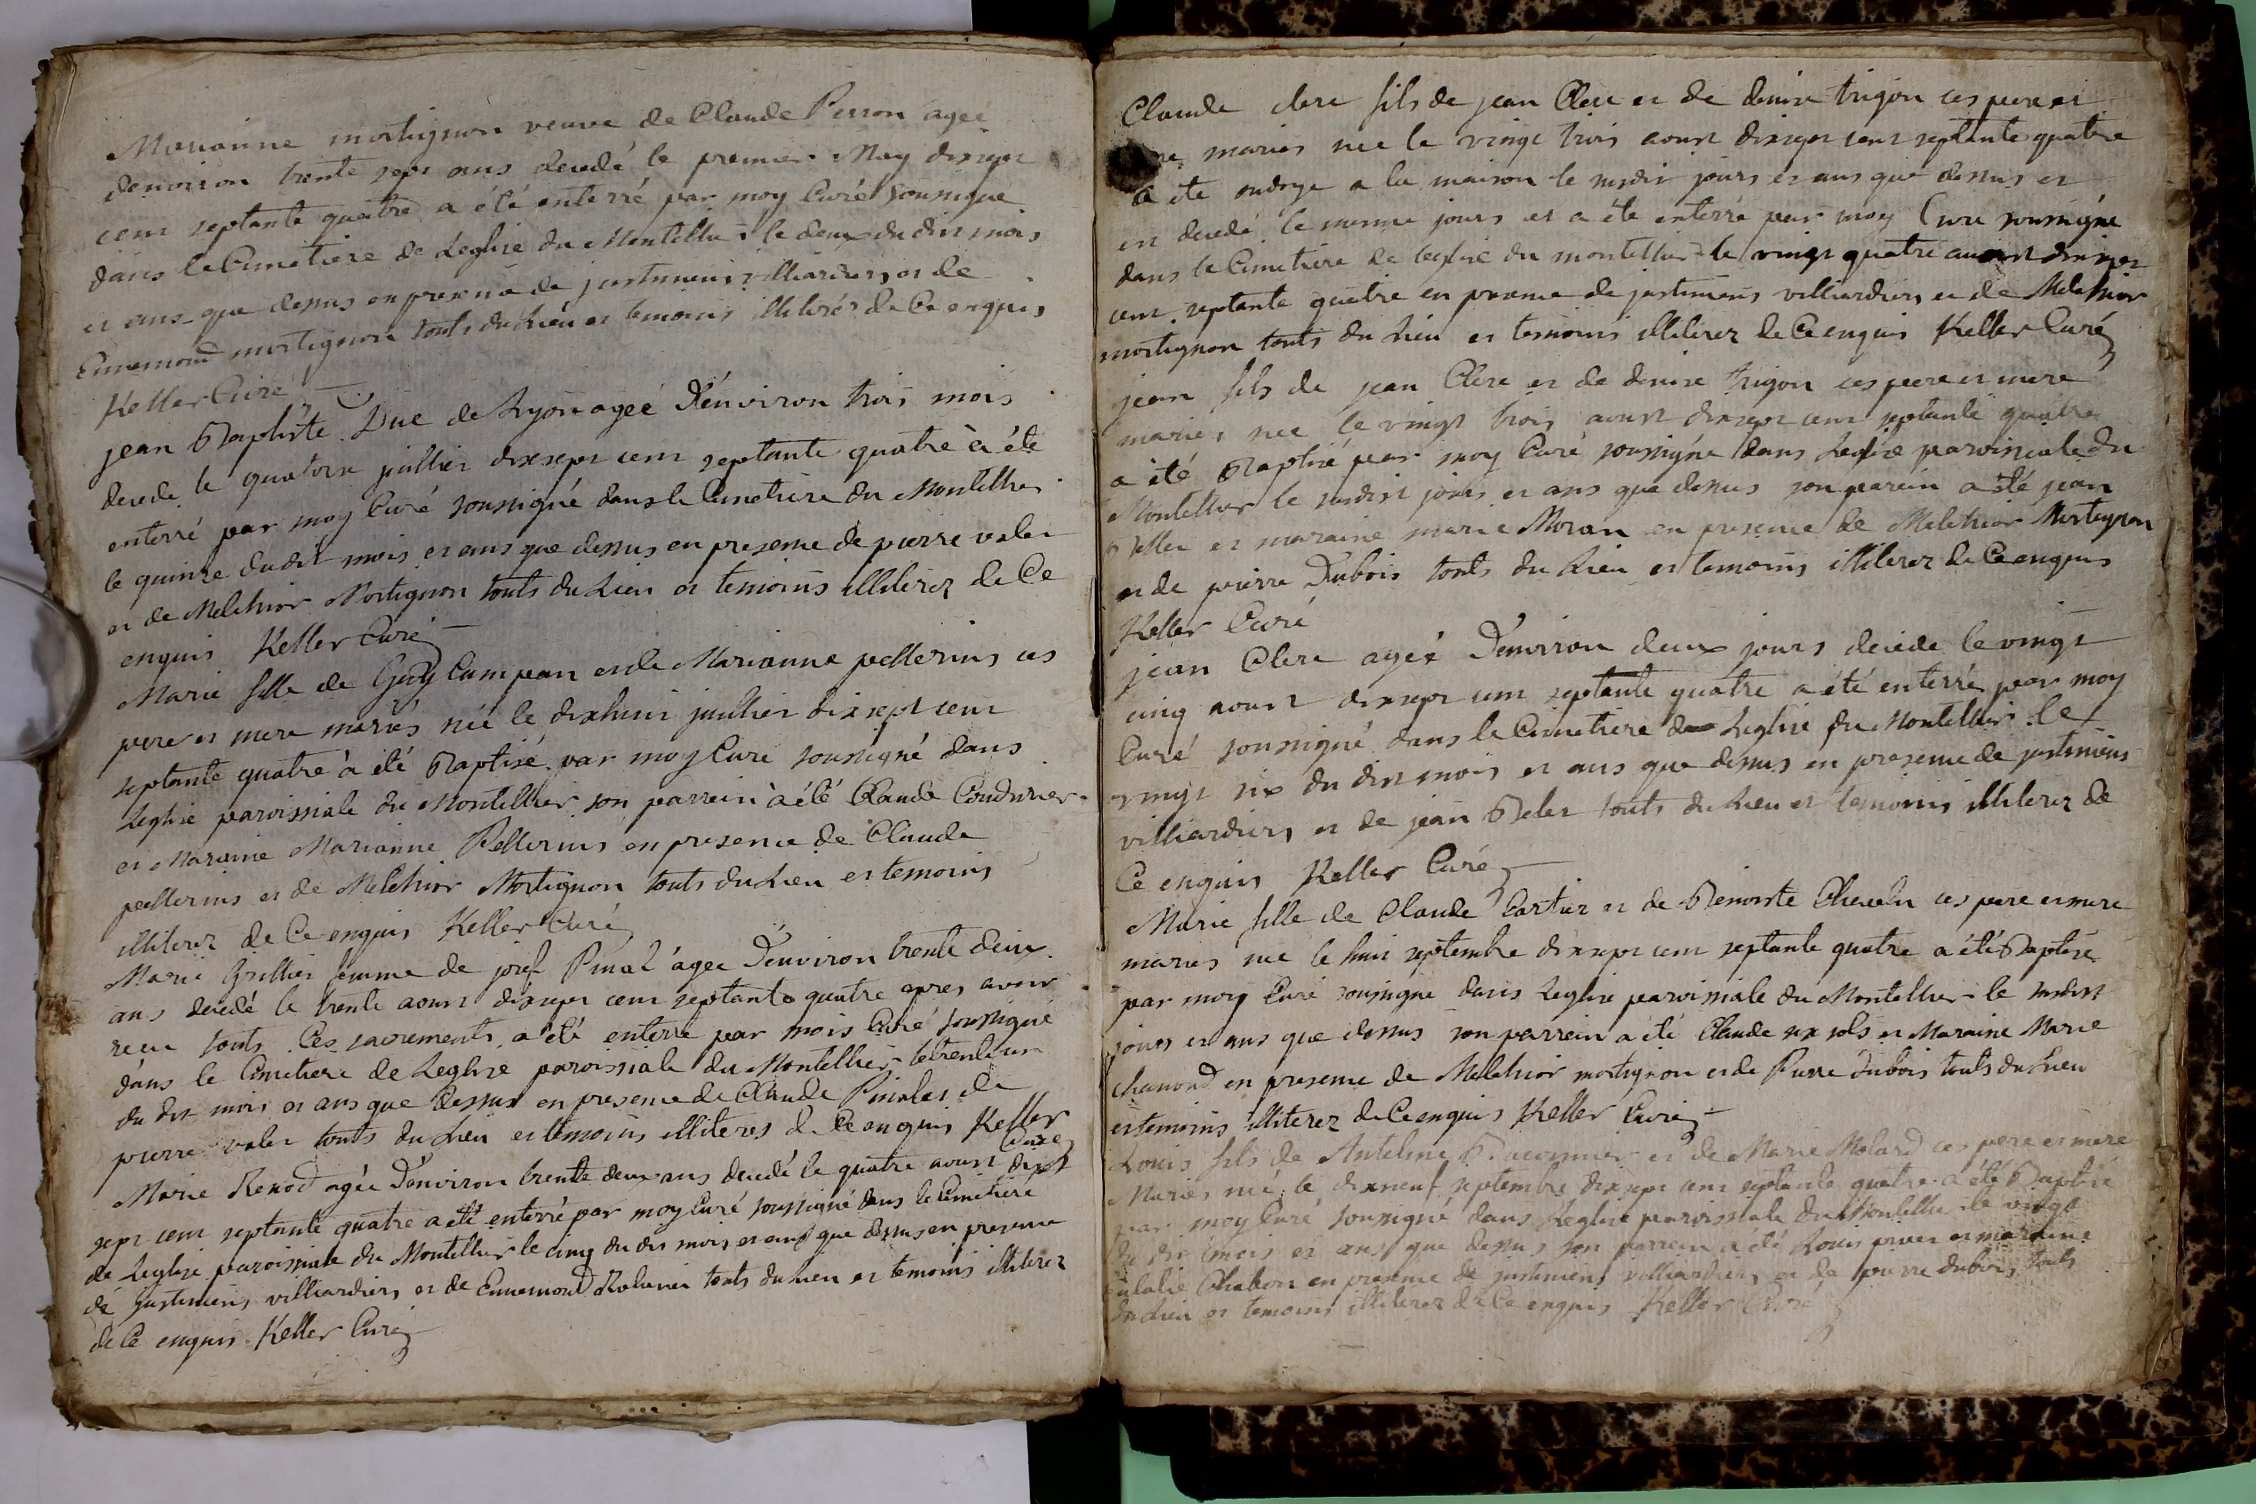 Marianne mortignon veuve de Claude Perron agee
denviron trente sept ans decedé le premier May dixsept
cent septante quatre a été enterré par moy Curé sousigné
dans le Cimetiere de Leglise du Montellier le deux du dit mois
et ans que dessus en presence de justiniens villiardiers et de
Ennemond mortignon touts du Lieu et temoins illiterés de Ce enquis
Keller Curé
jean Baptiste Duc de Lyon ageé D'environ trois mois
decede le quatorze juillier dixsept cent septante quatre à été
enterré par moy Curé sousigné dans le Cimetiere du Montellier
le quinze dudit mois et ans que dessus en presence de pierre valer
et de Melchior Mortignon touts du Lieu et temoins illiterez de Ce
enquis Keller Curé
Marie fille de Guy Campean et de Marianne pellerins ces
pere et mere mariés née le dixhuit juillier dixsept cent
septante quatre à été Baptisé par moy Curé sousigné dans
Leglise paroissiale du Montellier son parrein à été Claude Coudurier
et Maraine Marianne Pellerins en presence de Claude
pellerins et de Melchior Mortignon touts du Lieu et temoins
illiterez de Ce enquis Keller Curé
Marie Grillier femme de josef Pinal agee D'environ trente deux
ans decedé le trente aoust dixsept cent septante quatre apres avoir
recu touts Ces sacrements a été enterré par mois Curé sousigné
dans le Cimetiere de Leglise paroissiale du Montellier le trente un
du dit mois et ans que dessus en presence de Claude Pinal et de
pierre valer touts du Lieu et temoins illiteres de Ce enquis Keller
Curé
Marie Renod agée D'environ trente deux ans decedé le quatre aoust dix
sept cent septante quatre a été enterré par moy Curé sousigné dans le Cimetiere
de Leglise paroissiale du Montellier le cinq du dit mois et ans que dessus en presence
de justiniens villiardiers et de Ennemond touts du Lieu et temoins illiterez
de Ce enquis Keller Curé
Claude clerc fils de jean Clerc et de denise trigon ces pere et
mariés née le vingt trois aoust dixsept cent septante quatre
a été ondoye a la maison le susdit jours et ans que dessus et
et decedé le meme jours et a été enterré par moy Curé sousigné
dans le Cimetiere de leglise du montellier le vingt quatre aoust dixsept
cent septante quatre en presence de justiniens villiardiers et de Melchior
mortignon touts du Lieu et temoins illiterez de Ce enquis Keller Curé
jean fils de jean Clerc et de denise trigon ces pere et mere
mariés née le vingt trois aoust dixsept cent septante quatre
a été Baptisé par moy Curé sousigné dans Leglise paroissiale du
Montellier le susdist jours et ans que dessus son parein a été jean
Beller et maraine marie Moran en presence de Melchior Mortignon
et de pierre Dubois touts du Lieu et temoins illiterez de Ce enquis
Keller Curé
jean Clerc ageé D'environ deux jours decede le vingt
cinq aoust dixsept cent septante quatre a été enterré par moy
Curé sousigné dans le Cimetiere de Leglise du Montellier le
vingt six du dist mois et ans que dessus en presence de justiniens
villiardiers et de jean Beler touts du Lieu et temoins illiterez de
Ce enquis Keller Curé
Marie fille de Claude Cartier et de Benoiste Chevalu ces pere et mere
mariés née le huit septembre dixsept cent septante quatre a été Baptisé
par moy Curé sousigné dans Leglise paroissiale du Montellier le susdist
jours et ans que dessus son parrein a été Claude six sols et Maraine Marie
chamond en presence de Melchior mortignon et de Pierre Dubois touts du Lieu
et temoins illiterez de Ce enquis Keller Curé
Louis fils de Antelme et de Marie Molard ces pere et mere
Mariés né le dixneuf septembre dixsept cent septante quatre a été Baptisé
par moy Curé sousigné dans Leglise paroissiale du Montellier le vingt
du dit mois et ans que dessus son parrein a été Louis et maraine
Eulalie Chabon en presence de justiniens villiardiers et de pierre dubois touts
du Lieu et temoins illiterez de Ce enquis Keller Curé